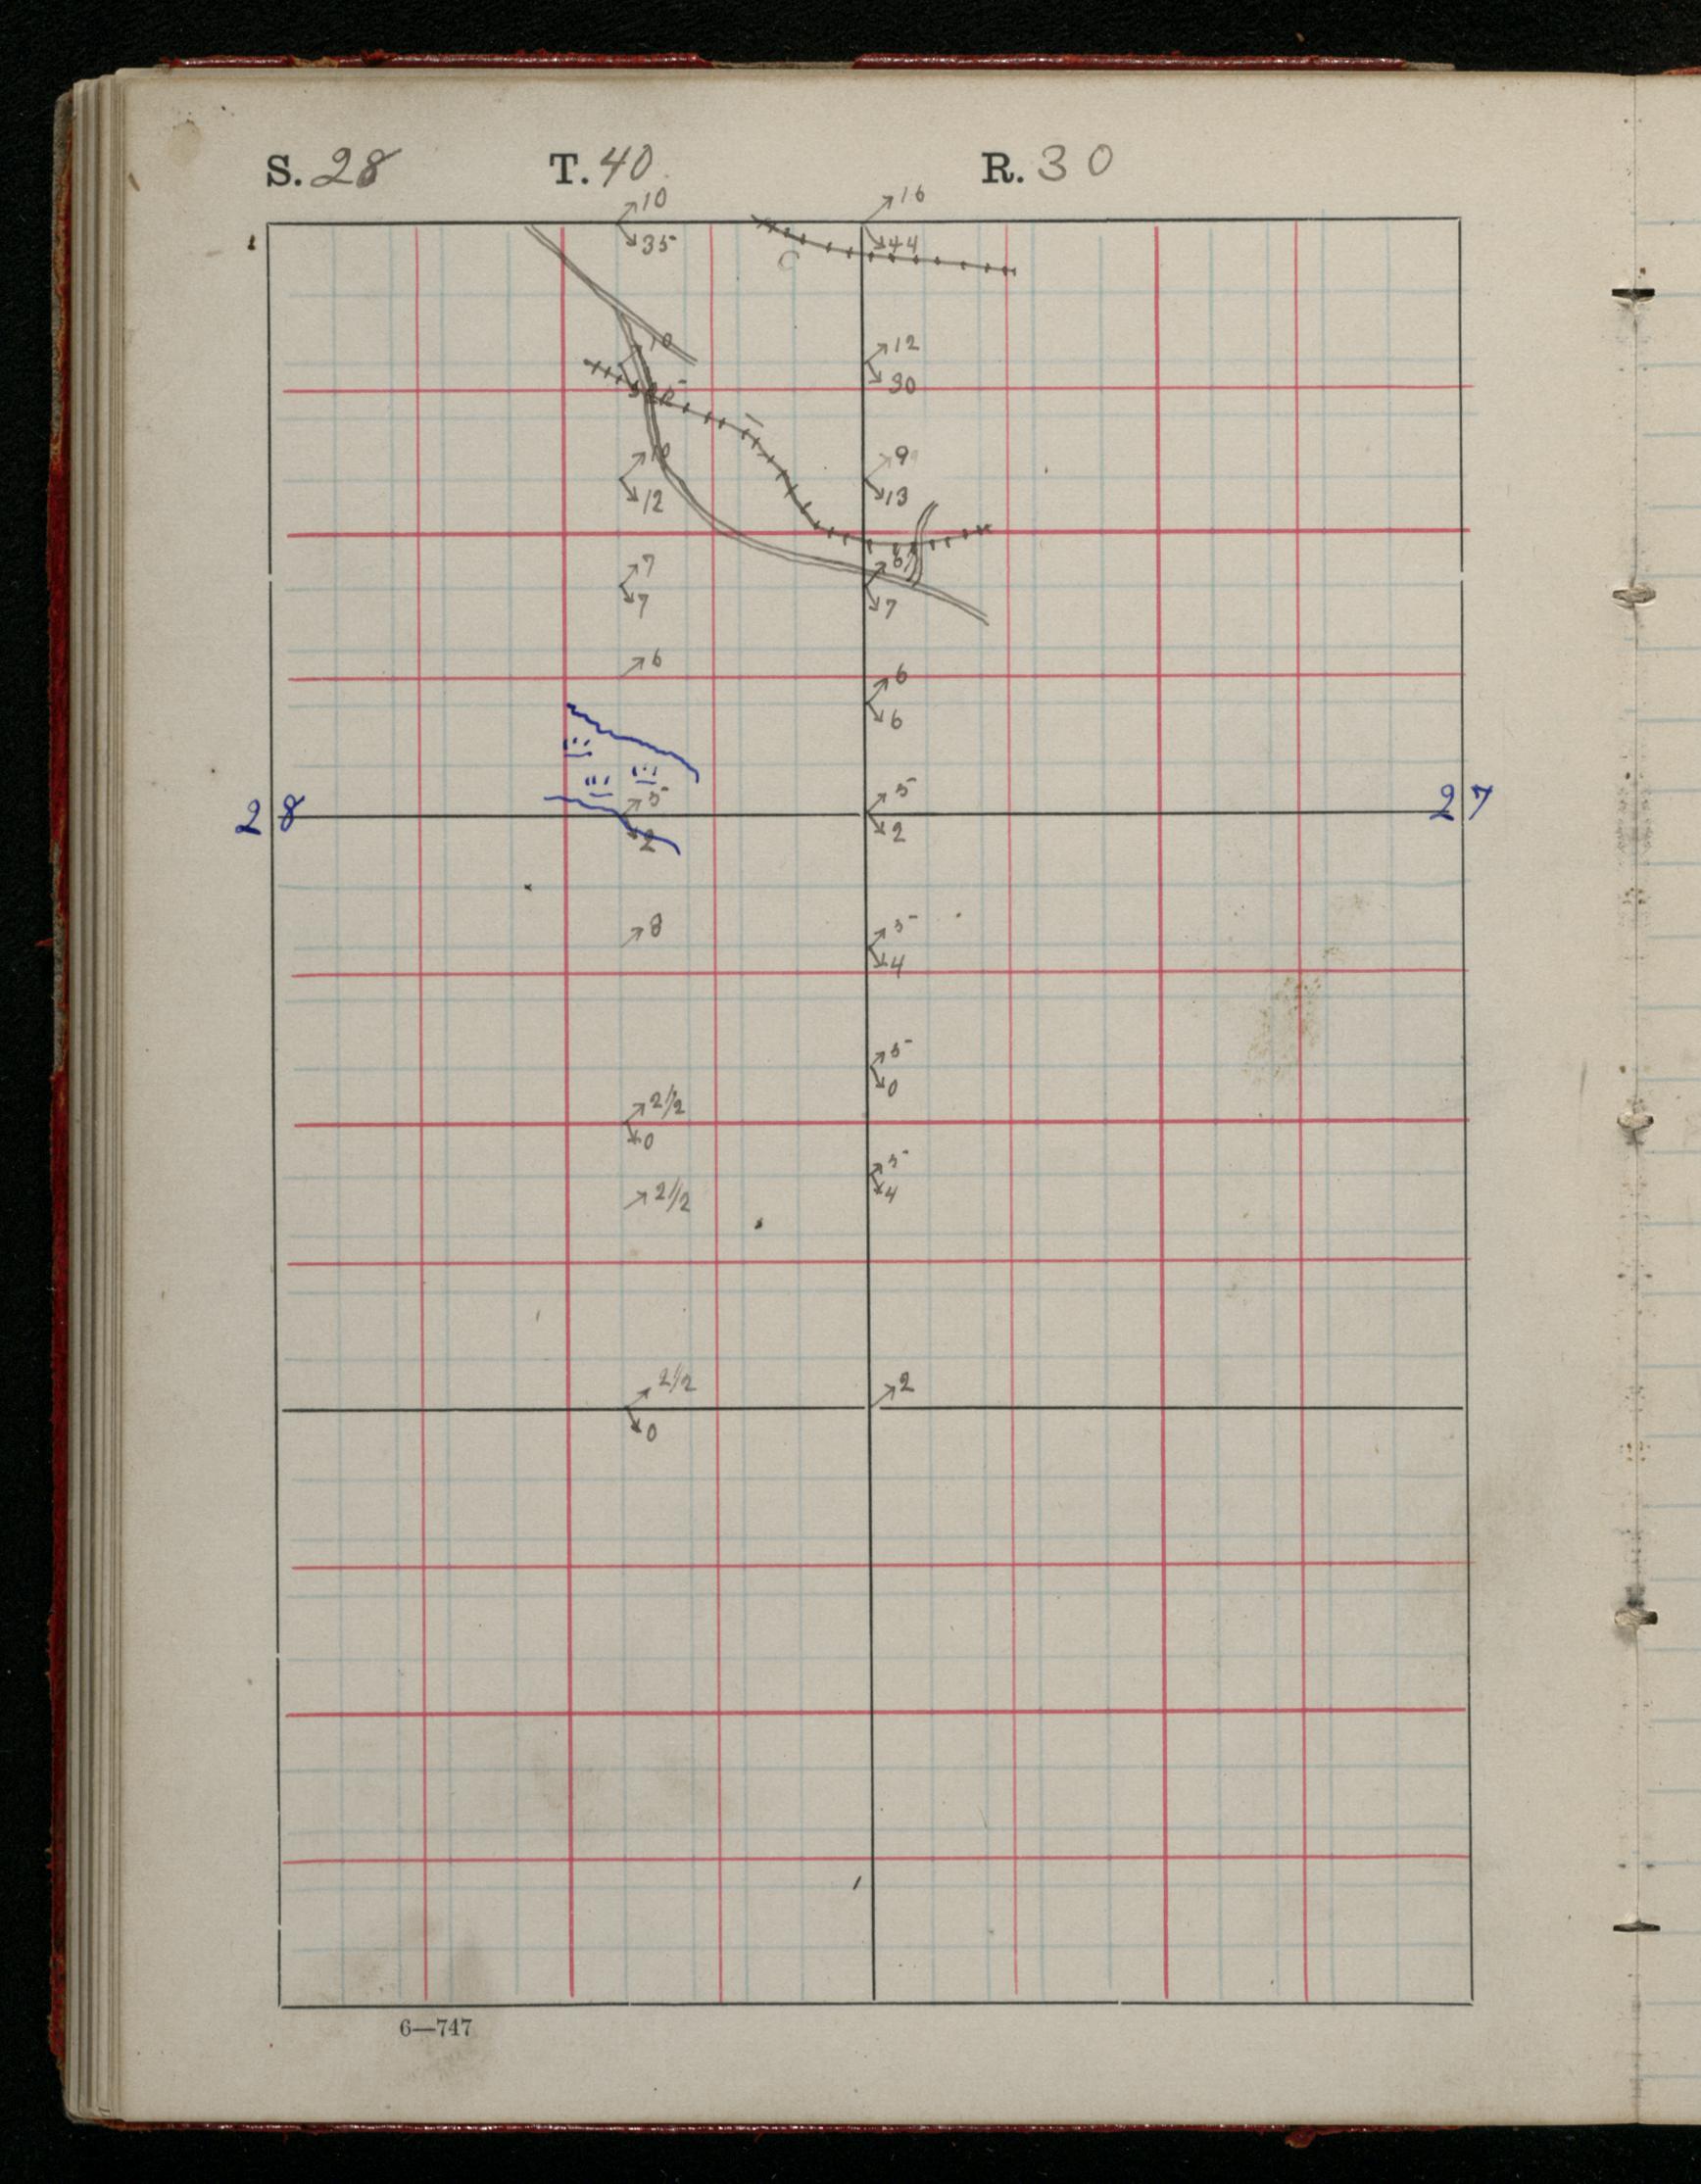 S. 28 T. 40 R. 30
10 16
35 44
10 12
30
10 9
12 13
7 6
7 7
6 6
6
28 5 5 27
2 2
8 5
4
5
0
2 1/2
0
5
2 1/2 4
2 1/2 2
0
6—747